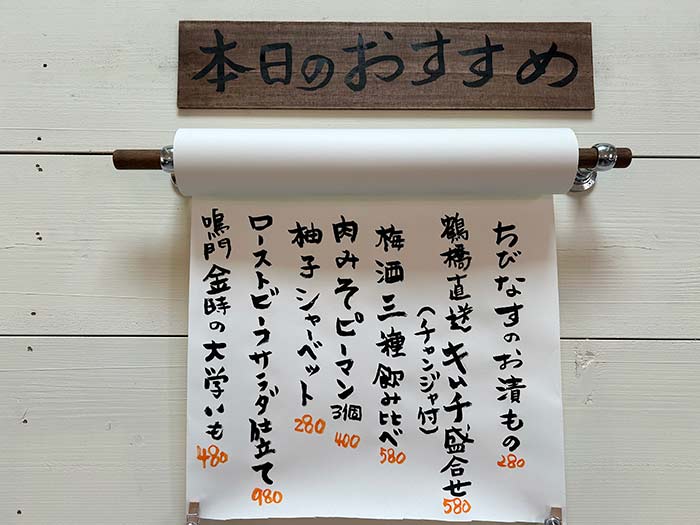 本日のおすすめ
ちびなすのお漬もの
280
鶴橋直送キムチ盛合せ
(チャンジャ付)
580
梅酒三種飲み比べ
580
肉みそピーマン3個
400
柚子シャーベット
280
ローストビーフサラダ仕立て
980
鳴門金時の大学いも
480